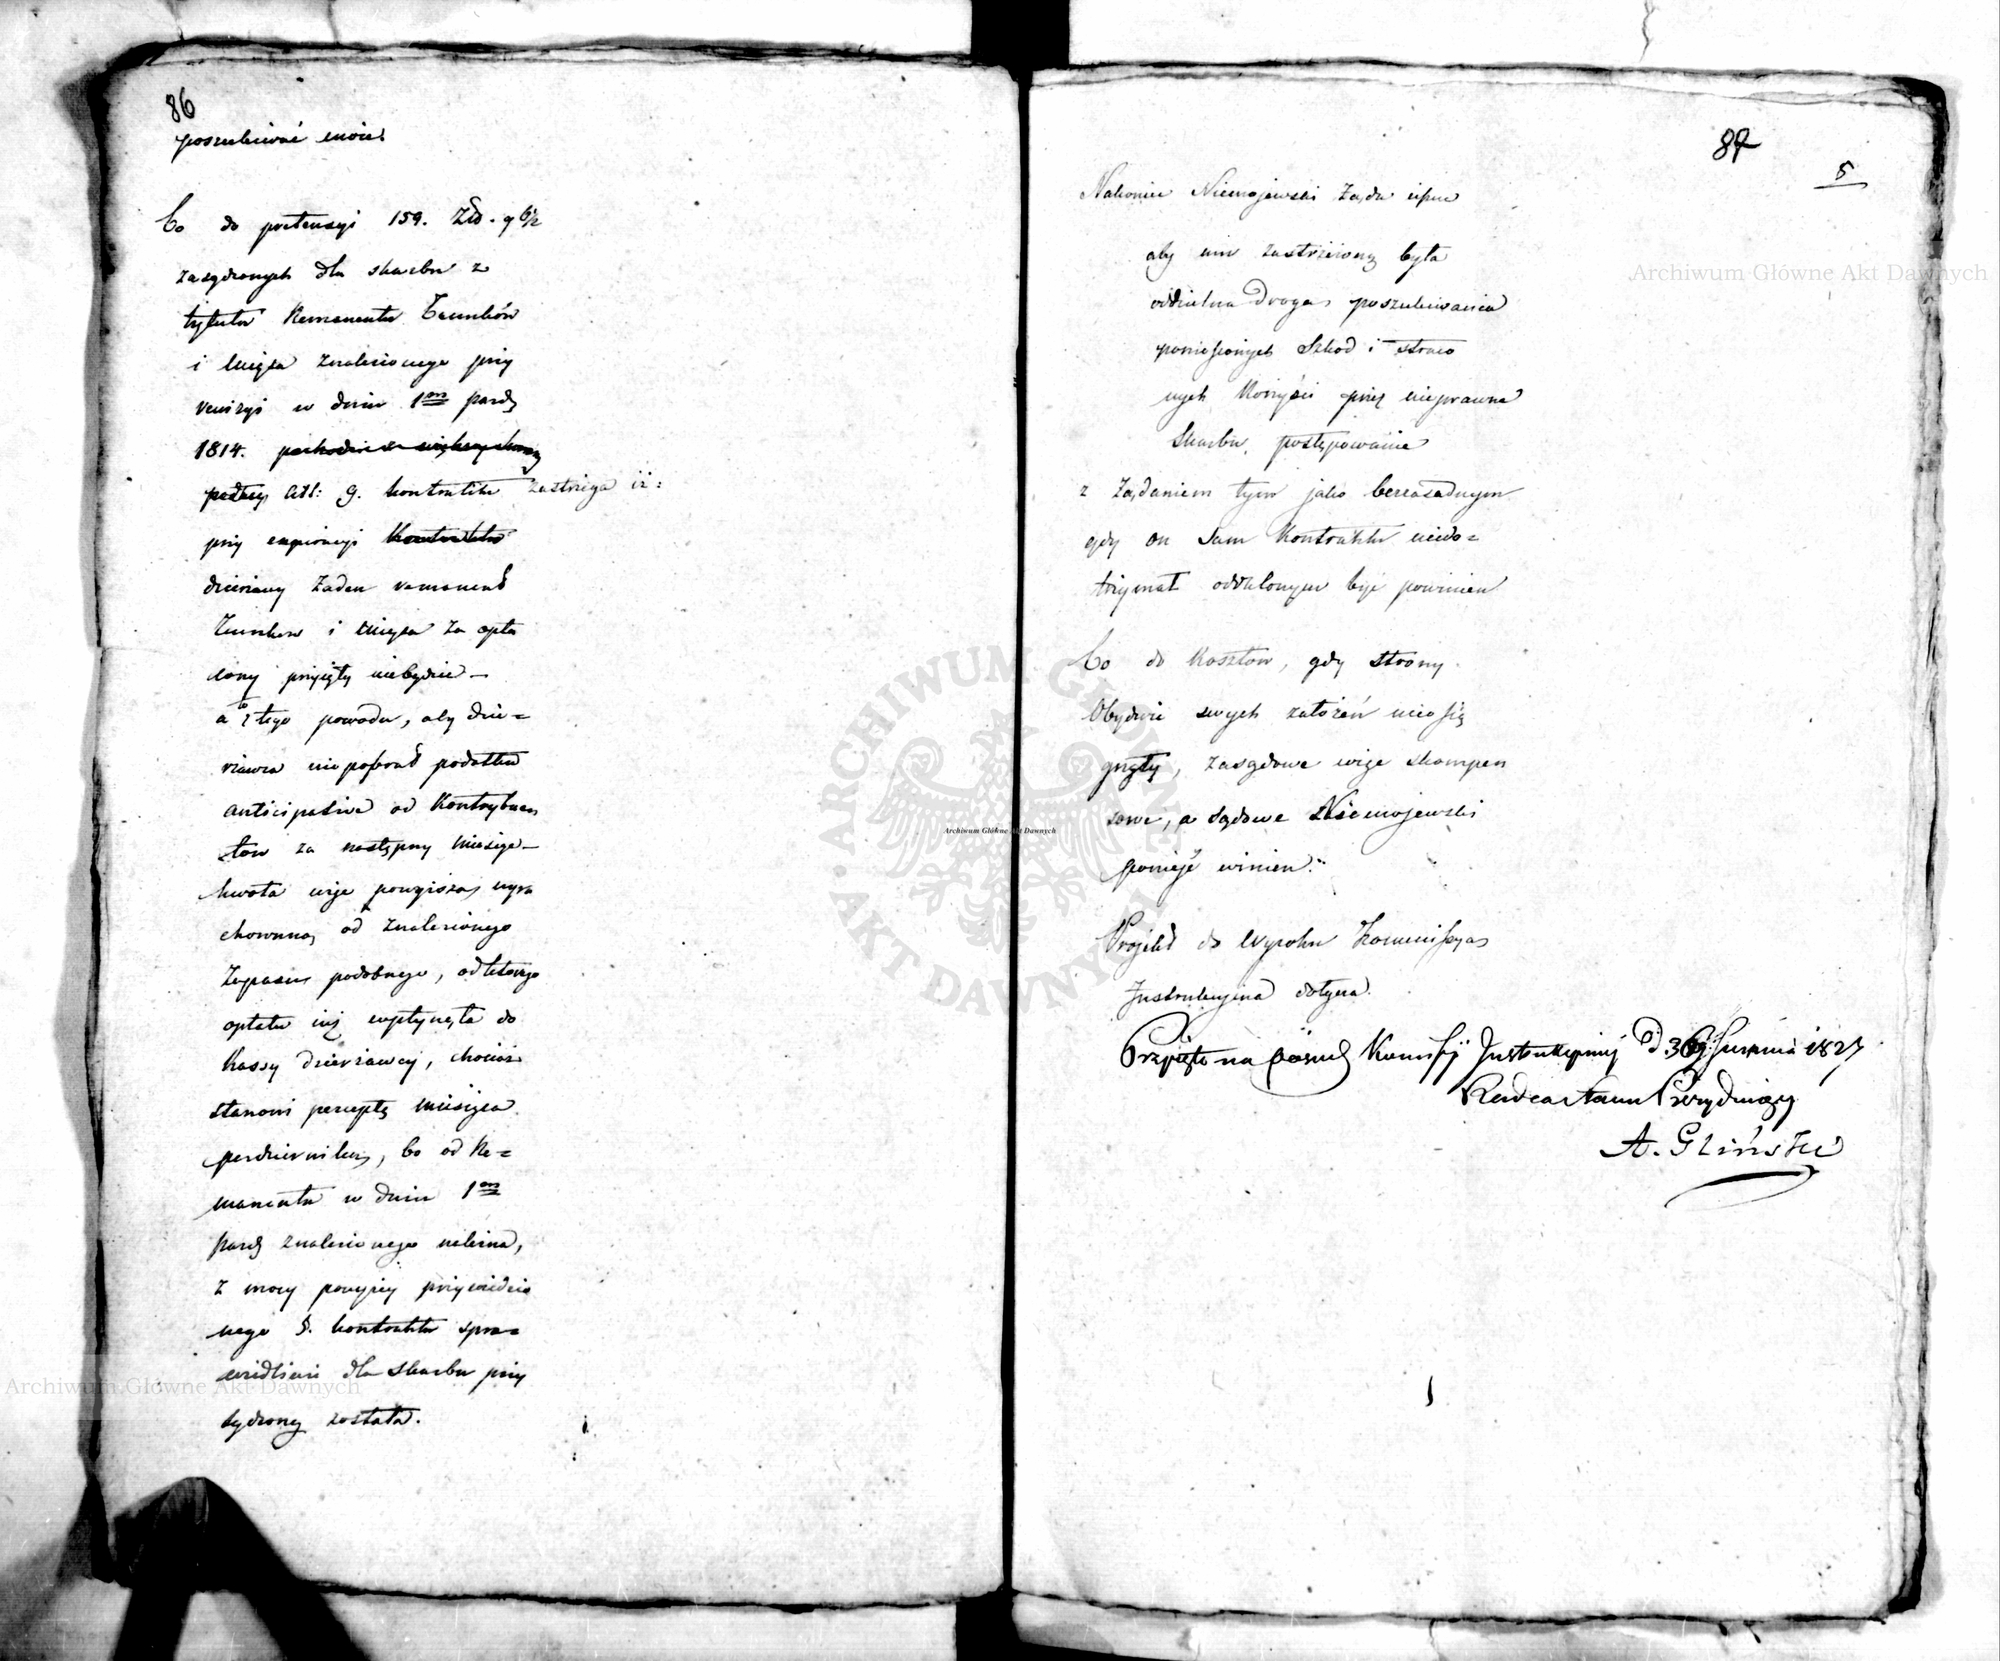 86
poszukiwać może.
Co do pretensyi 159. Złp. g 6½
zasądzonych dla skarbu z
tytułu Remanentu Trunków
i Mięsa znalezionego przy
rewizyi w dniu 1ᵐ paźd
1814.
Art: 9. kontraktu zastrzega iż:
przy expiracyi Kontraktu
dzierżawy żaden remanent
Trunków i Mięsa za opła
cony przyięty niebędzie —
a to z tego powodu, aby dzie=
rżawca niepobrał podatku
anticipative od Kontrybuen
tów za następny Miesiąc —
kwota więc powyższa wyra
chowana od znalezionego
Zapasu podobnego, od którego
opłata iuż wpłynęła do
Kassy dzierżawcy, chociaż
stanowi perceptę Miesiąca
października, bo od Re=
manentu w dniu 1ᵐ
paźd znalezionego
z mocy powyżey przywiedzio
nego §. kontraktu spra=
wiedliwie dla Skarbu przy
sądzoną została.
87
5
Nakoniec Niemojewski żąda
aby mu zastrzeżoną była
oddzielna Droga poszukiwania
poniesionych Szkod i straco
nych Korzyści przez nieprawne
Skarbu postępowanie
z Żądaniem tym jako bezzasadnym
gdy on Sam Kontraktu niedo=
trzymał oddalonym być powinien
Co do Kosztów, gdy strony
Obydwie swych założeń nieosią
gnęły, zasądowe więc skompen
sować, a sądowe Niemojewski
ponieść winien.
Projekt do Wyroku Kommissya
Instrukcyina dołącza.
Przyięto na Kommissyi Instrukcyiney D. 1827
Prezyduiący
A. Gliński
Archiwum Główne Akt Dawnych
Archiwum Główne Akt Dawnych
Archiwum Główne Akt Dawnych
ARCHIWUM GŁÓWNE AKT DAWNYCH